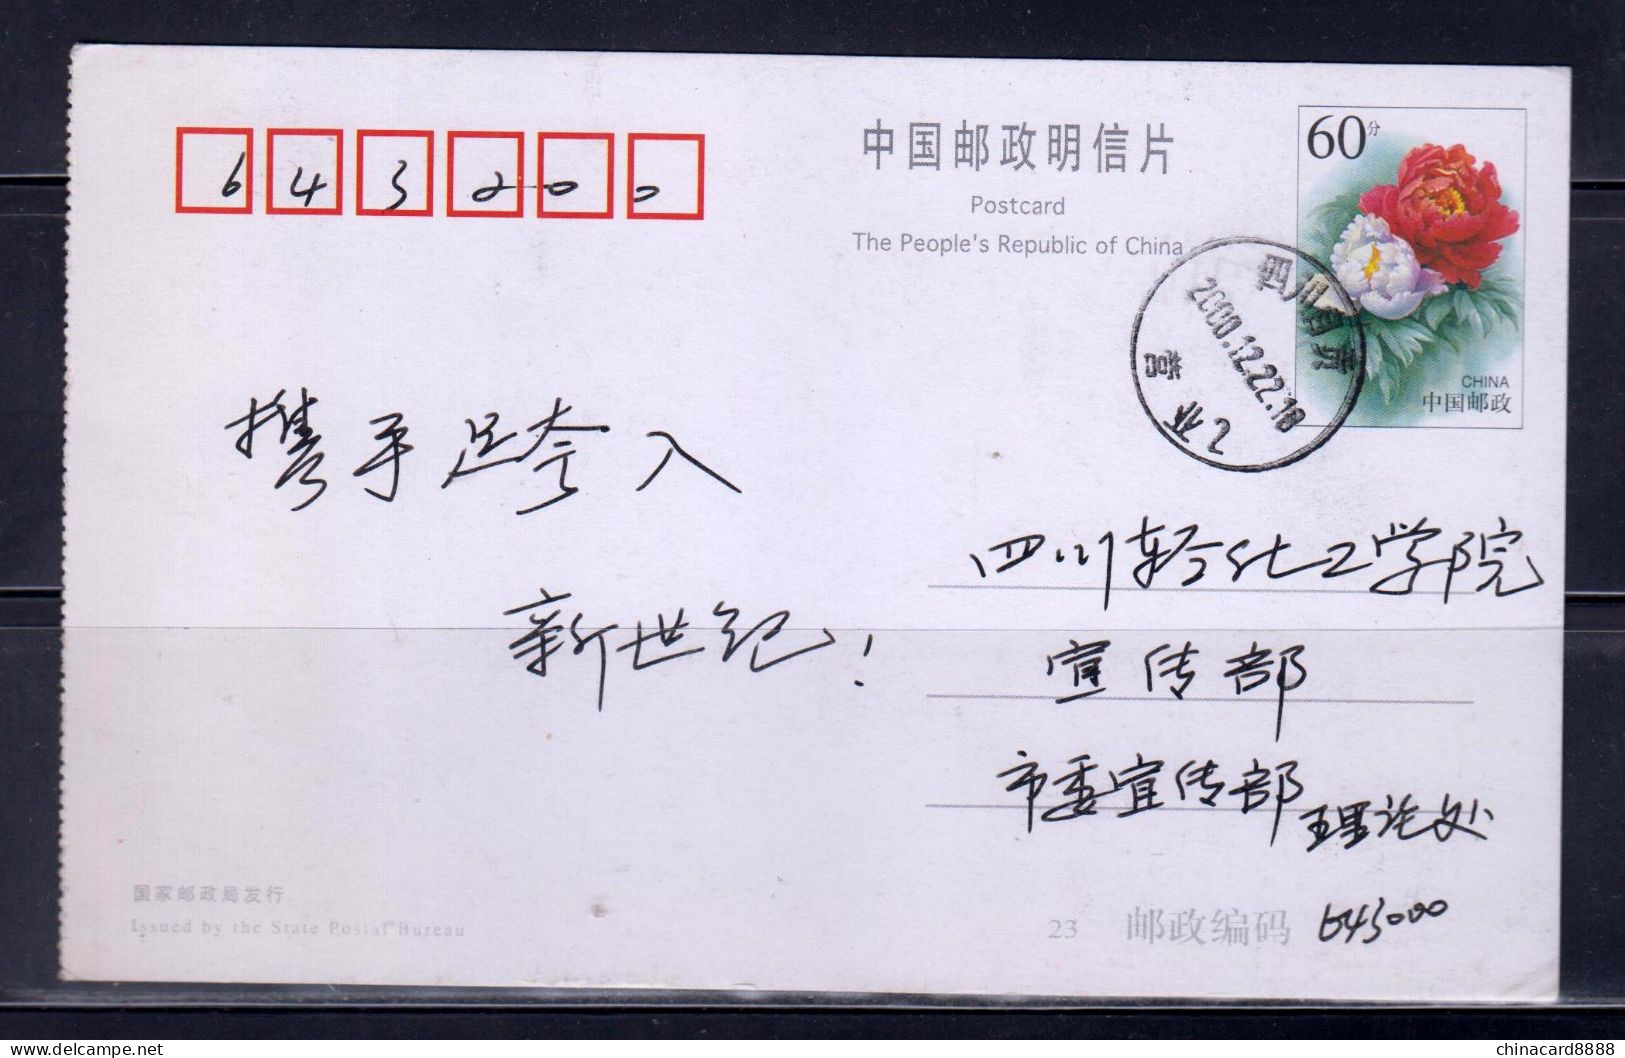 643200
中国邮政明信片
Postcard
The People's Republic of China
60分
CHINA
中国邮政
四川自贡
2000.12.22.18
营
携手跨入
新世纪!
四川轻化工学院
宣传部
市委宣传部
理论处
国家邮政局发行
Issued by the State Postal Bureau
23
邮政编码 643000
chinacard8888